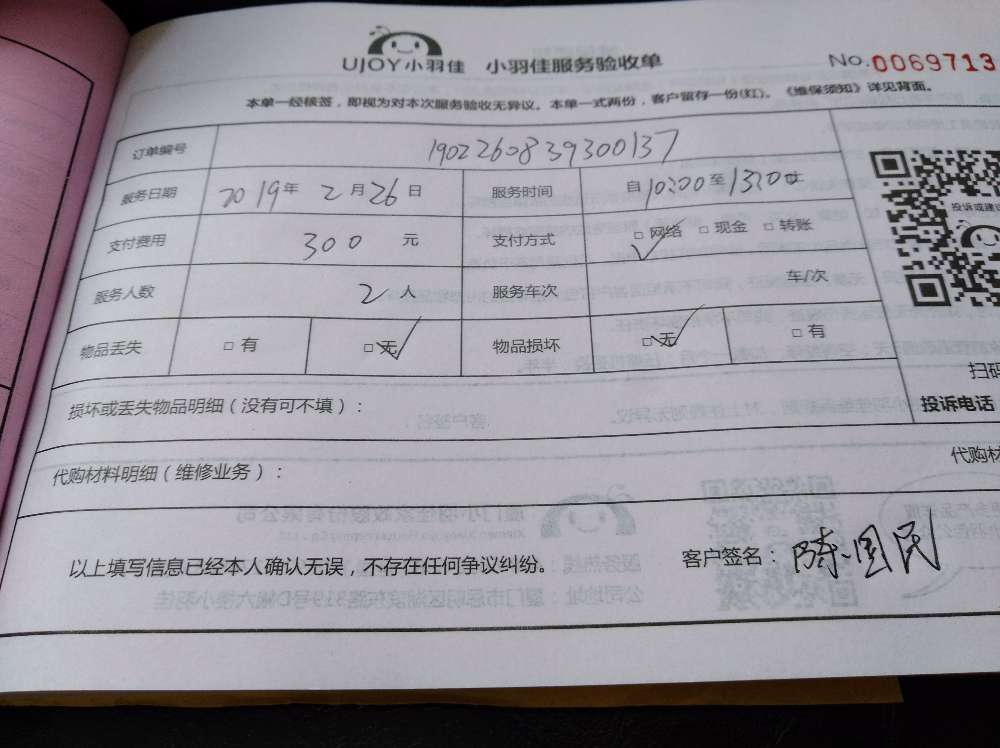 UJOY小羽佳 小羽佳服务验收单 No.0069713
本单一经核签，即视为对本次服务验收无异议。本单一式两份，客户留存一份(红)。《维保须知》详见背面。
订单编号 190226083930013​7
服务日期 2019年 2月26日 服务时间 自10:00至13:00止
投诉或建议
支付费用 300 元 支付方式 □网络 □现金 □转账
服务人数 2人 服务车次 车/次
物品丢失 □有 □无 物品损坏 □无 □有
扫码
损坏或丢失物品明细（没有可不填）： 投诉电话
代购材料明细（维修业务）： 代购材
以上填写信息已经本人确认无误，不存在任何争议纠纷。 客户签名：陈国民